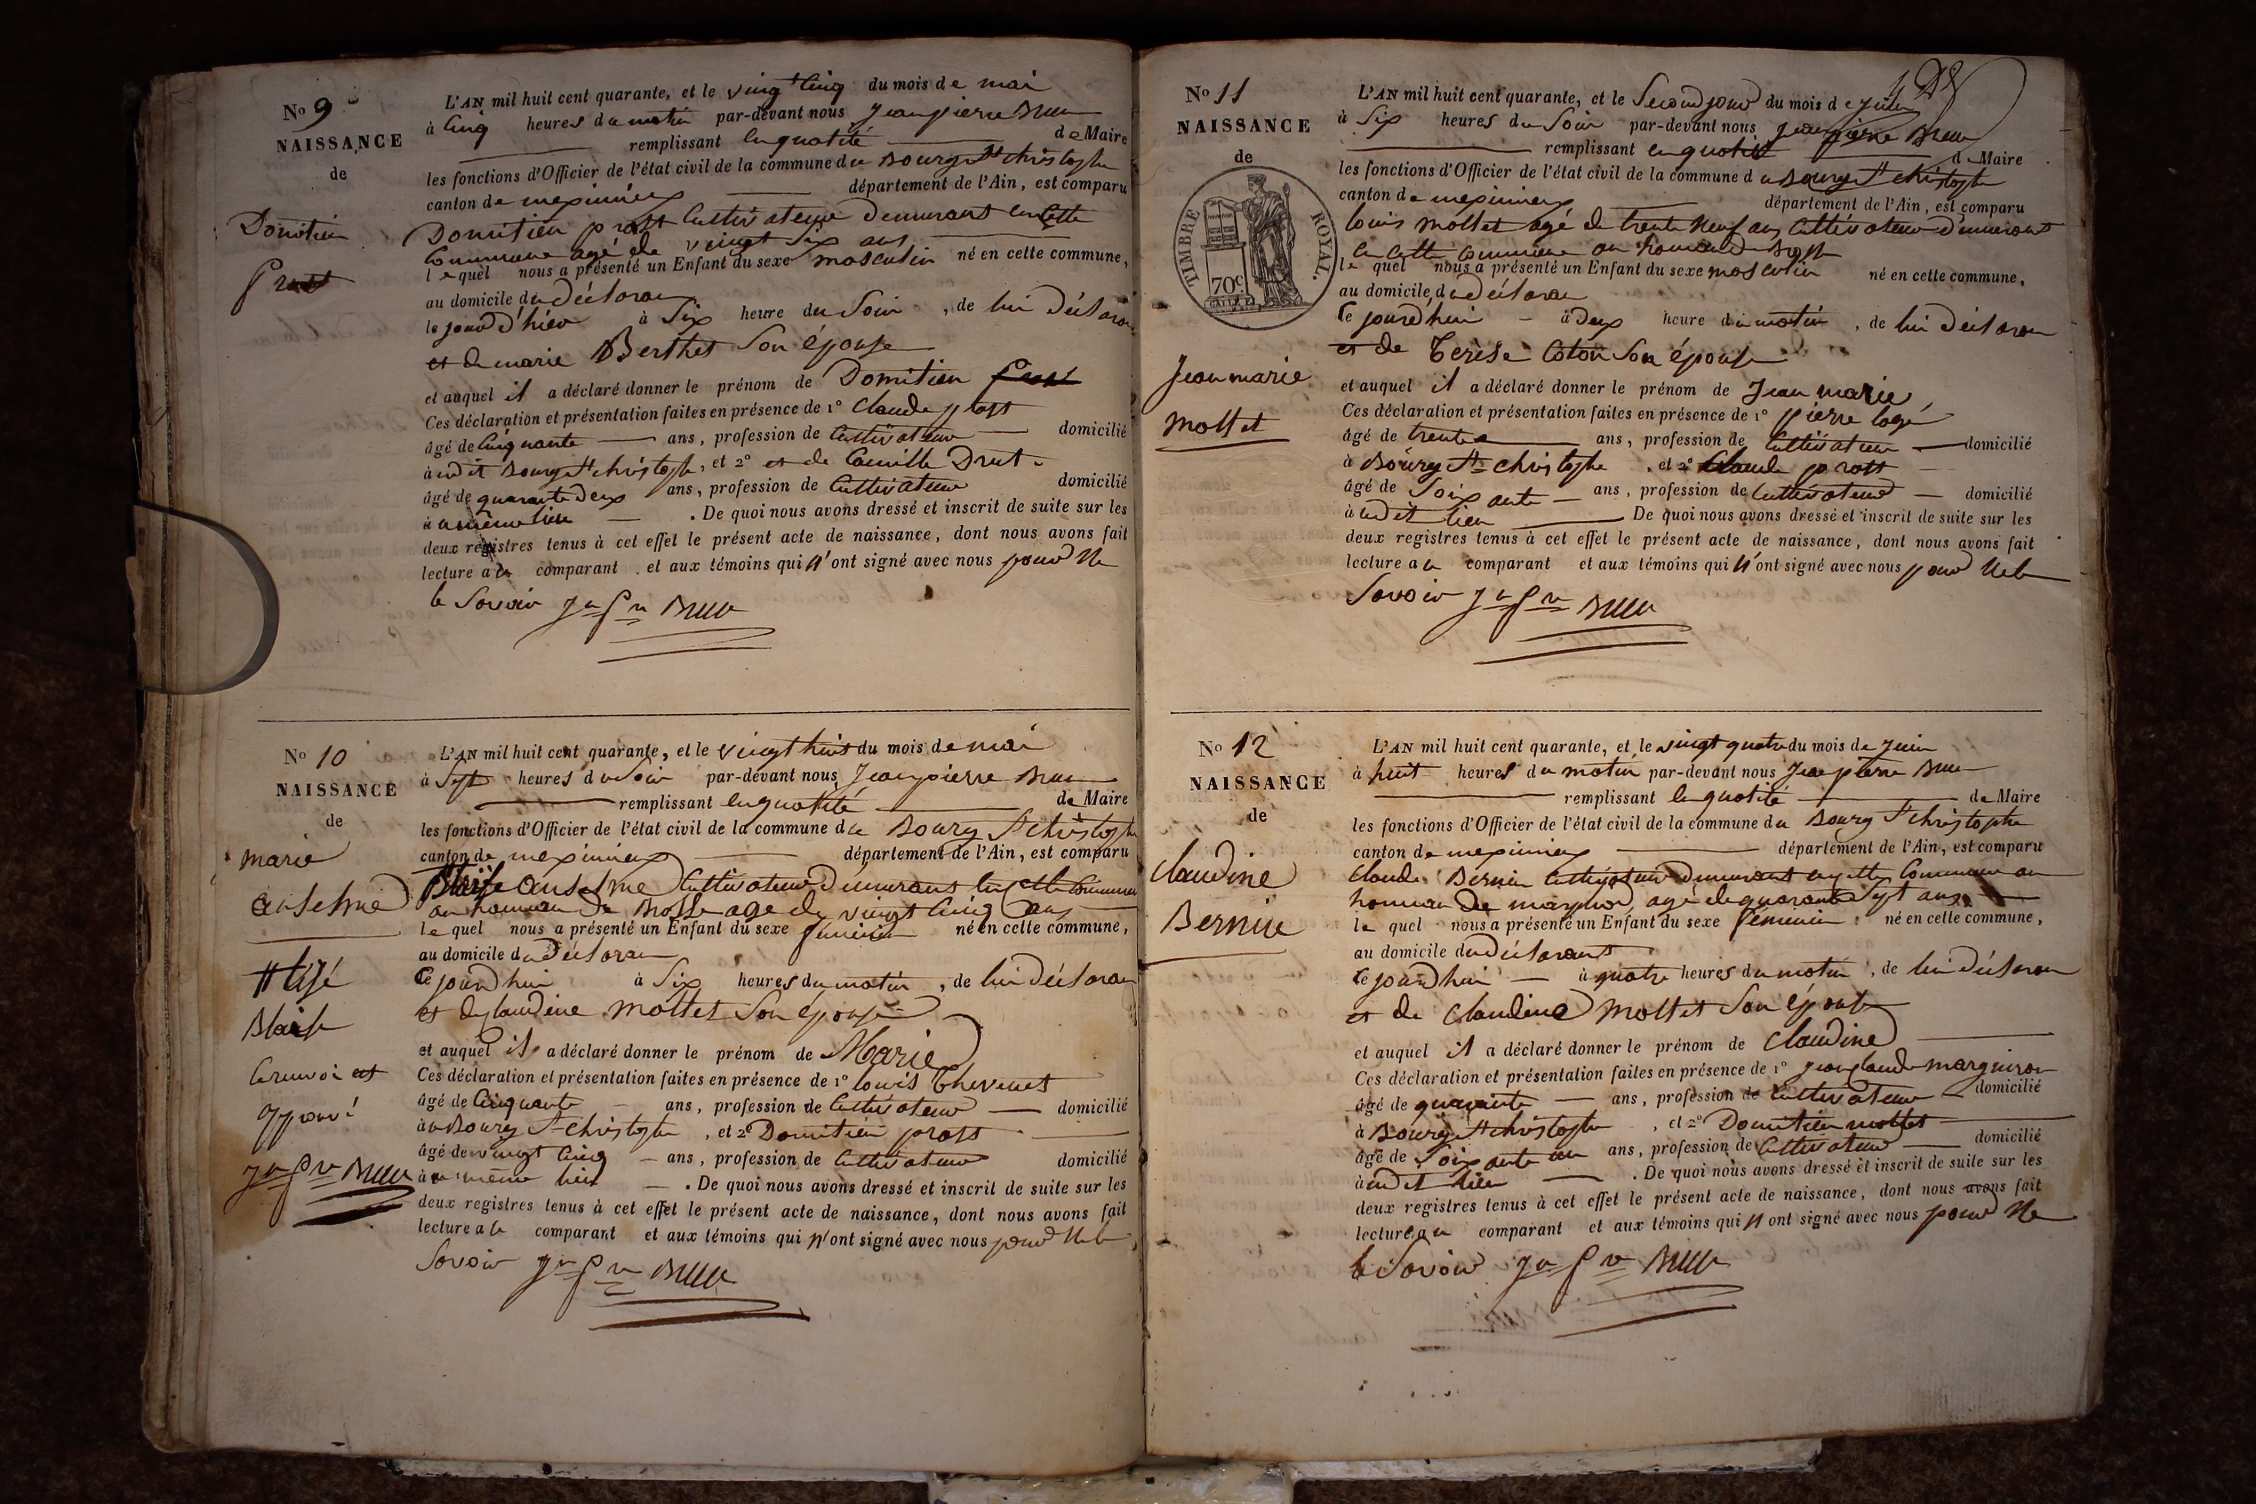 No 9
NAISSANCE
de
Domitien
Prost
L'AN mil huit cent quarante, et le vingt Cinq du mois de mai
à Cinq heures du matin par-devant nous Jean pierre Brun
remplissant en qualité de Maire
les fonctions d'Officier de l'état civil de la commune du Bourg St christophe
canton de meximieux département de l'Ain, est comparu
Domitien prost Cultivateur Demeurant en Cette
Commune agé de vingt Six ans
lequel nous a présenté un Enfant du sexe masculin né en cette commune,
au domicile du déclarant
le jour d'hier à Six heure du Soir, de lui Déclarant
et de marie Berthet Son épouse
et auquel il a déclaré donner le prénom de Domitien
Ces déclaration et présentation faites en présence de 1° Claude prost
âgé de Cinquante ans, profession de Cultivateur domicilié
à udit Bourg St christophe, et 2° et de Camille Drut
âgé de quarante deux ans, profession de Cultivateur domicilié
à u même lieu. De quoi nous avons dressé et inscrit de suite sur les
deux registres tenus à cet effet le présent acte de naissance, dont nous avons fait
lecture au comparant et aux témoins qui n'ont signé avec nous pour Ne
le Savoir Jn Pre Brun
No 10
NAISSANCE
de
marie
anselme
Blaise
le renvoi est
approuvé
Jn Pre Brun
L'AN mil huit cent quarante, et le vingt huit du mois de mai
à Sept heures du Soir par-devant nous Jean pierre Brun
remplissant en qualité de Maire
les fonctions d'Officier de l'état civil de la commune du Bourg St christophe
canton de meximieux département de l'Ain, est comparu
Blaise anselme Cultivateur Demeurant en Cette Commune
au hameau De agé de vingt Cinq ans
lequel nous a présenté un Enfant du sexe féminin né en cette commune,
au domicile du Déclarant
Ce jourd'hui à Six heures du matin, de lui Déclarant
et de claudine mollet Son épouse
et auquel il a déclaré donner le prénom de Marie
Ces déclaration et présentation faites en présence de 1° louis thevenet
âgé de Cinquante ans, profession de Cultivateur domicilié
à u Bourg St christophe, et 2° Domitien prost
âgé de vingt Cinq ans, profession de Cultivateur domicilié
à u même lieu. De quoi nous avons dressé et inscrit de suite sur les
deux registres tenus à cet effet le présent acte de naissance, dont nous avons fait
lecture a le comparant et aux témoins qui n'ont signé avec nous pour Ne le
Savoir Jn Pre Brun
No 11
NAISSANCE
de
TIMBRE ROYAL.
70c
Jean marie
mollet
L'AN mil huit cent quarante, et le Second jour du mois de Juin
à Six heures du Soir par-devant nous Jean pierre Brun
remplissant en qualité de Maire
les fonctions d'Officier de l'état civil de la commune du Bourg St christophe
canton de meximieux département de l'Ain, est comparu
louis mollet agé de trente Neuf ans Cultivateur demeurant
en cette Commune au hameau de
lequel nous a présenté un Enfant du sexe masculin né en cette commune,
au domicile du déclarant
Ce jourd'hui à deux heure du matin, de lui Déclarant
et de Terèse Coton Son épouse
et auquel il a déclaré donner le prénom de Jean marie
Ces déclaration et présentation faites en présence de 1° pierre
âgé de trente ans, profession de Cultivateur domicilié
à Bourg St christophe, et 2° Claude prost
âgé de Soixante ans, profession de Cultivateur domicilié
à udit lieu De quoi nous avons dressé et inscrit de suite sur les
deux registres tenus à cet effet le présent acte de naissance, dont nous avons fait
lecture a u comparant et aux témoins qui n'ont signé avec nous pour Ne le
Savoir Jn Pre Brun
No 12
NAISSANCE
de
Claudine
Bernin
L'AN mil huit cent quarante, et le vingt quatre du mois de Juin
à huit heures du matin par-devant nous Jean pierre Brun
remplissant en qualité de Maire
les fonctions d'Officier de l'état civil de la commune du Bourg St christophe
canton de meximieux département de l'Ain, est comparu
Claude Bernin Cultivateur Demeurant en cette Commune au
hameau De agé de quarante Sept ans
lequel nous a présenté un Enfant du sexe féminin né en cette commune,
au domicile du déclarant
Ce jourd'hui à quatre heures du matin, de lui Déclarant
et de Claudine mollet Son épouse
et auquel il a déclaré donner le prénom de Claudine
Ces déclaration et présentation faites en présence de 1° Jean claude
âgé de quarante ans, profession de Cultivateur domicilié
à Bourg St christophe, et 2° Domitien mollet
âgé de Soixante un ans, profession de Cultivateur domicilié
à udit lieu. De quoi nous avons dressé et inscrit de suite sur les
deux registres tenus à cet effet le présent acte de naissance, dont nous avons fait
lecture a u comparant et aux témoins qui n'ont signé avec nous pour Ne
le Savoir Jn Pre Brun